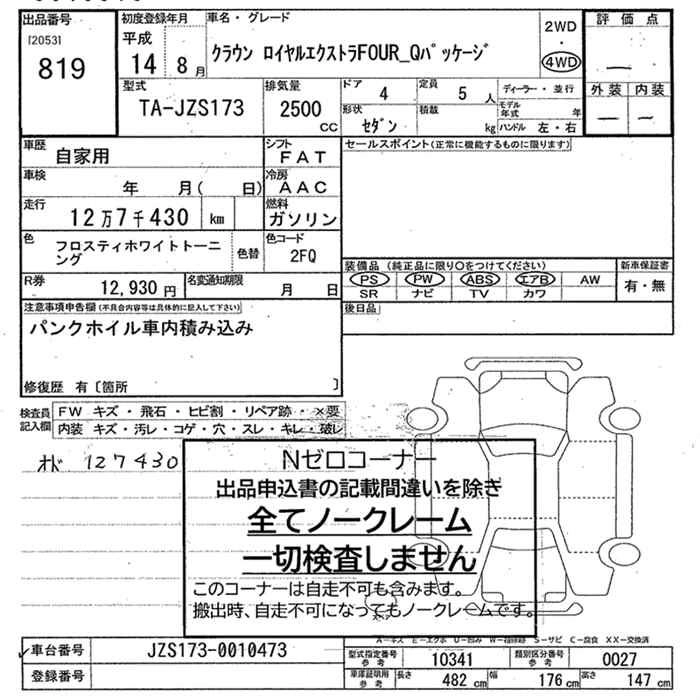 出品番号 初度登録年月 車名・グレード 2WD 評価点
[2053] 平成 ・
819 14 8月 クラウン ロイヤルエクストラFOUR_Qパッケージ 4WD —
型式 排気量 ドア 定員 ディーラー・並行 外装 内装
TA-JZS173 2500 CC 4 5人 モデル年式 年 — —
形状 積載
セダン kg ハンドル 左・右
車歴 シフト セールスポイント(正常に機能するものに限ります)
自家用 FAT
車検 冷房
年 月( 日) AAC
走行 燃料
12万7千430 km ガソリン
色 色コード
フロスティホワイトトーニ
ング 色替 2FQ
装備品 (純正品に限り○をつけてください) 新車保証書
R券 名変通知期限 PS PW ABS エアB AW 有・無
12,930円 月 日 SR ナビ TV カワ
注意事項申告欄(不具合内容等は具体的に記入して下さい) 後日品
パンクホイル車内積み込み
修復歴 有[箇所 ]
検査員記入欄 FW キズ・飛石・ヒビ割・リペア跡・×要
内装 キズ・汚レ・コゲ・穴・スレ・キレ・破レ
オド 127430
Nゼロコーナー
出品申込書の記載間違いを除き
全てノークレーム
一切検査しません
このコーナーは自走不可も含みます。
搬出時、自走不可になってもノークレームです。
A-キズ E-エクボ U-凹み W-補修跡 S-サビ C-腐食 XX-交換済
車台番号 JZS173-0010473 型式指定番号 参考 10341 類別区分番号 参考 0027
登録番号 車庫証明用 参考 長さ 482 cm 幅 176 cm 高さ 147 cm